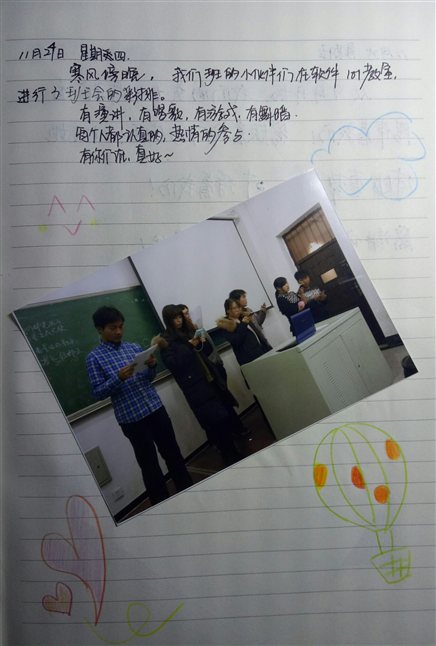 11月24日 星期四.
寒风傍晚, 我们班的小伙伴们在软件101教室,
进行了到士会的彩排。
有演讲, 有唱歌, 有游戏, 有舞蹈.
每个人都认真的, 热情的参与.
有你们在, 真好~